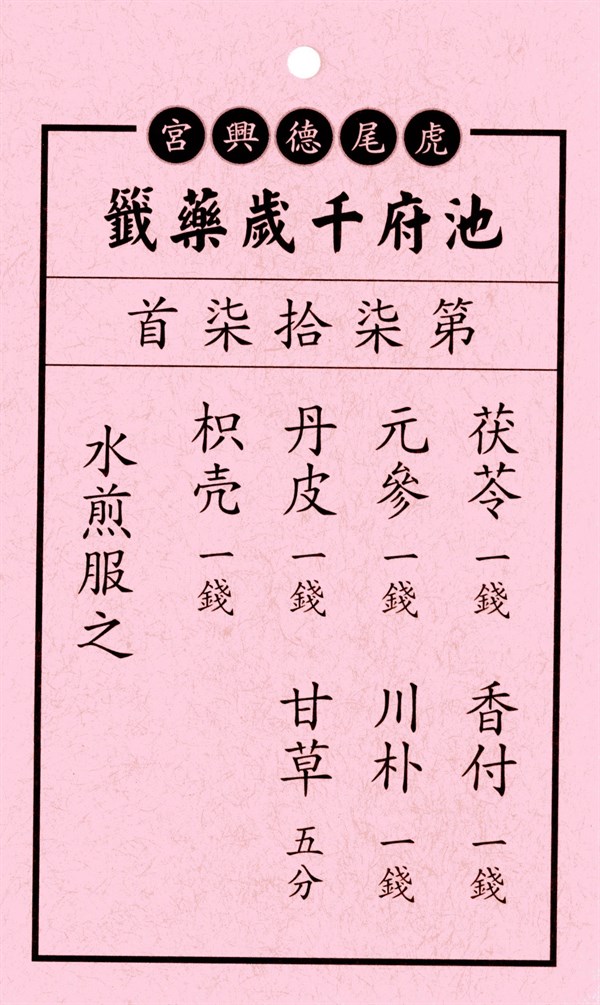 虎尾德興宮
池府千歲藥籤
第柒拾柒首
茯苓一錢 香付一錢
元參一錢 川朴一錢
丹皮一錢 甘草五分
枳壳一錢
水煎服之